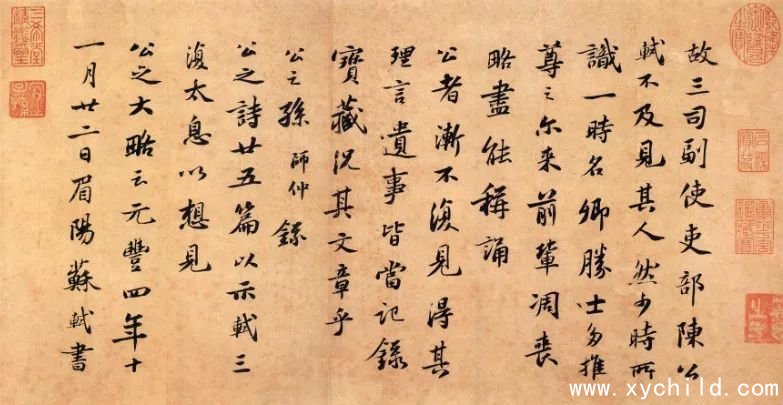 故三司副使吏部陳公
軾不及見其人然少時所
識一時名卿勝士多推
尊之尔来前輩凋喪
略盡能稱誦
公者漸不復見得其
理言遺事皆當記錄
寶藏況其文章乎
公之孫師仲錄
公之詩廿五篇以示軾三
復太息以想見
公之大略云元豐四年十
一月廿二日眉陽蘇軾書
三希堂精鑑璽
宜子孫
www.xychild.com